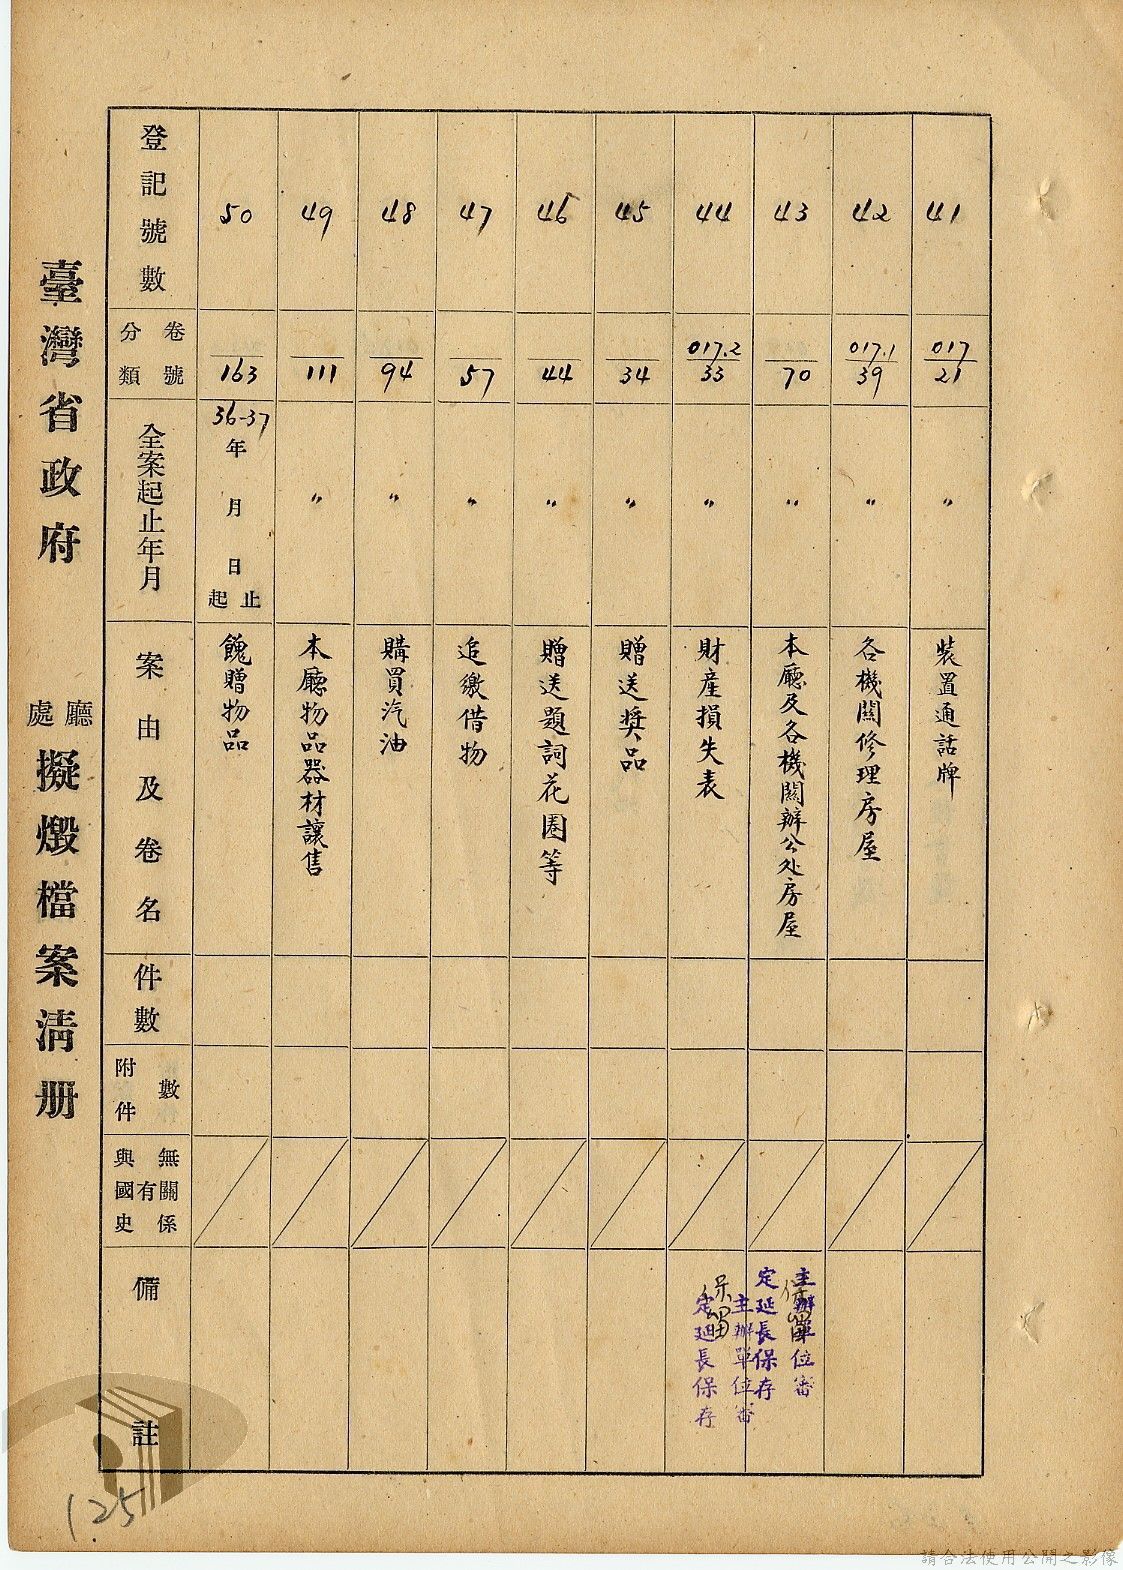 臺灣省政府 廳處 擬燬檔案清册
登記號數 50 49 48 47 46 45 44 43 42 41
分類 卷號 163 111 94 57 44 34 017.2 33 70 017.1 39 017 21
全案起止年月 36-37年 月 日 起止 〃 〃 〃 〃 〃 〃 〃 〃 〃
案由及卷名
餽贈物品
本廳物品器材讓售
購買汽油
追繳借物
贈送題詞花圈等
贈送獎品
財產損失表
本廳及各機關辦公处房屋
各機關修理房屋
裝置通話牌
件數
附件數
與國史有無關係
備註
保留
主辦單位審定延長保存
保留
主辦單位審定延長保存
125
請合法使用公開之影像